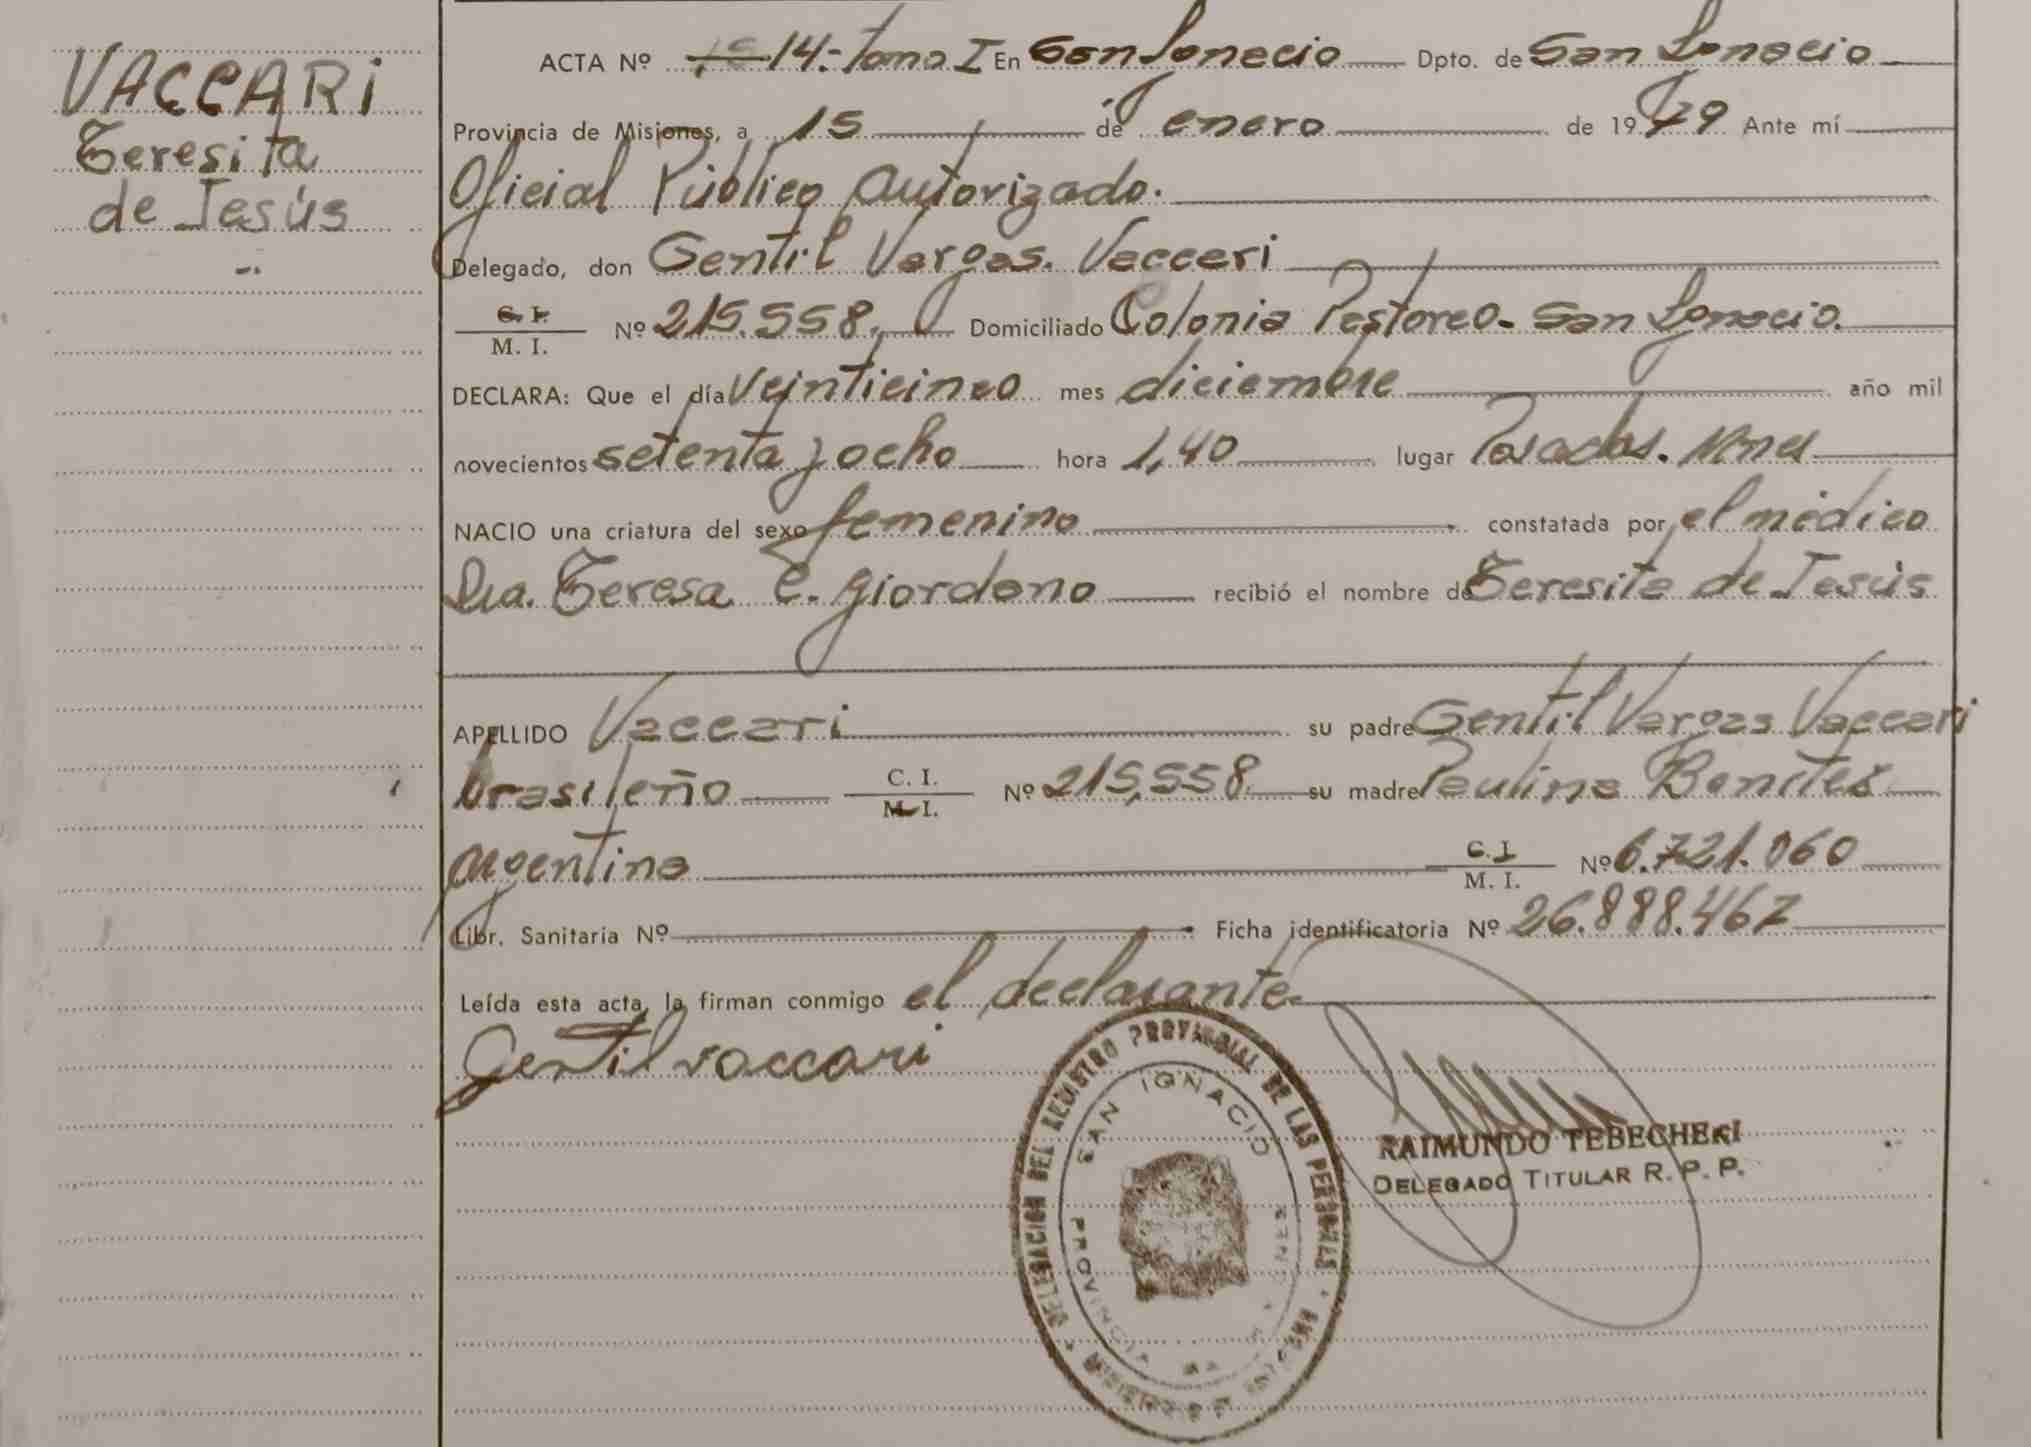 VACCARI
Teresita
de Jesús
ACTA Nº 14.- Tomo I En San Ignacio Dpto. de San Ignacio
Provincia de Misiones, a 15 de enero de 1979 Ante mí
Oficial Público Autorizado.
Delegado, don Gentil Vargas Vaccari
C. I.
M. I. Nº 215.558. Domiciliado Colonia Pastoreo - San Ignacio.
DECLARA: Que el día veinticinco mes diciembre año mil
novecientos setenta y ocho hora 1,40 lugar Posadas. Mnes
NACIO una criatura del sexo femenino constatada por el médico
Dra. Teresa E. Giordano recibió el nombre de Teresita de Jesús
APELLIDO Vaccari su padre Gentil Vargas Vaccari
brasileño C. I.
M. I. Nº 215,558. su madre Paulina Benitez
argentina C. I.
M. I. Nº 6.721.060
Libr. Sanitaria Nº Ficha identificatoria Nº 26.888.467
Leída esta acta, la firman conmigo el declarante
Gentil vaccari
DELEGACION DEL REGISTRO PROVINCIAL DE LAS PERSONAS
SAN IGNACIO
PROVINCIA
RAIMUNDO TEBECHERI
DELEGADO TITULAR R. P. P.